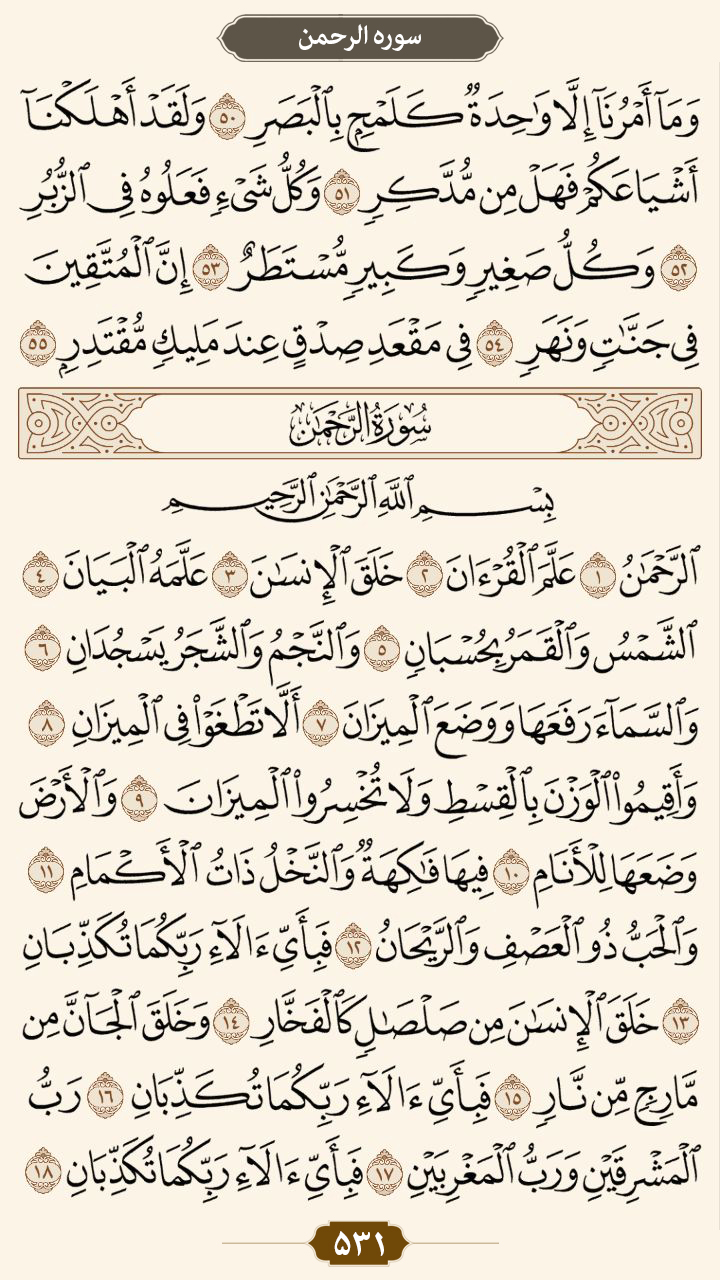 سوره الرحمن
وَمَآ أَمْرُنَآ إِلَّا وَٰحِدَةٌ كَلَمْحٍۭ بِٱلْبَصَرِ ٥٠ وَلَقَدْ أَهْلَكْنَآ
أَشْيَاعَكُمْ فَهَلْ مِن مُّدَّكِرٍ ٥١ وَكُلُّ شَىْءٍ فَعَلُوهُ فِى ٱلزُّبُرِ
٥٢ وَكُلُّ صَغِيرٍ وَكَبِيرٍ مُّسْتَطَرٌ ٥٣ إِنَّ ٱلْمُتَّقِينَ
فِى جَنَّٰتٍ وَنَهَرٍ ٥٤ فِى مَقْعَدِ صِدْقٍ عِندَ مَلِيكٍ مُّقْتَدِرٍۭ ٥٥
سُورَةُ الرَّحْمَٰن
بِسْمِ ٱللَّهِ ٱلرَّحْمَٰنِ ٱلرَّحِيمِ
ٱلرَّحْمَٰنُ ١ عَلَّمَ ٱلْقُرْءَانَ ٢ خَلَقَ ٱلْإِنسَٰنَ ٣ عَلَّمَهُ ٱلْبَيَانَ ٤
ٱلشَّمْسُ وَٱلْقَمَرُ بِحُسْبَانٍ ٥ وَٱلنَّجْمُ وَٱلشَّجَرُ يَسْجُدَانِ ٦
وَٱلسَّمَآءَ رَفَعَهَا وَوَضَعَ ٱلْمِيزَانَ ٧ أَلَّا تَطْغَوْا۟ فِى ٱلْمِيزَانِ ٨
وَأَقِيمُوا۟ ٱلْوَزْنَ بِٱلْقِسْطِ وَلَا تُخْسِرُوا۟ ٱلْمِيزَانَ ٩ وَٱلْأَرْضَ
وَضَعَهَا لِلْأَنَامِ ١٠ فِيهَا فَٰكِهَةٌ وَٱلنَّخْلُ ذَاتُ ٱلْأَكْمَامِ ١١
وَٱلْحَبُّ ذُو ٱلْعَصْفِ وَٱلرَّيْحَانُ ١٢ فَبِأَىِّ ءَالَآءِ رَبِّكُمَا تُكَذِّبَانِ
١٣ خَلَقَ ٱلْإِنسَٰنَ مِن صَلْصَٰلٍ كَٱلْفَخَّارِ ١٤ وَخَلَقَ ٱلْجَآنَّ مِن
مَّارِجٍ مِّن نَّارٍ ١٥ فَبِأَىِّ ءَالَآءِ رَبِّكُمَا تُكَذِّبَانِ ١٦ رَبُّ
ٱلْمَشْرِقَيْنِ وَرَبُّ ٱلْمَغْرِبَيْنِ ١٧ فَبِأَىِّ ءَالَآءِ رَبِّكُمَا تُكَذِّبَانِ ١٨
۵۳۱